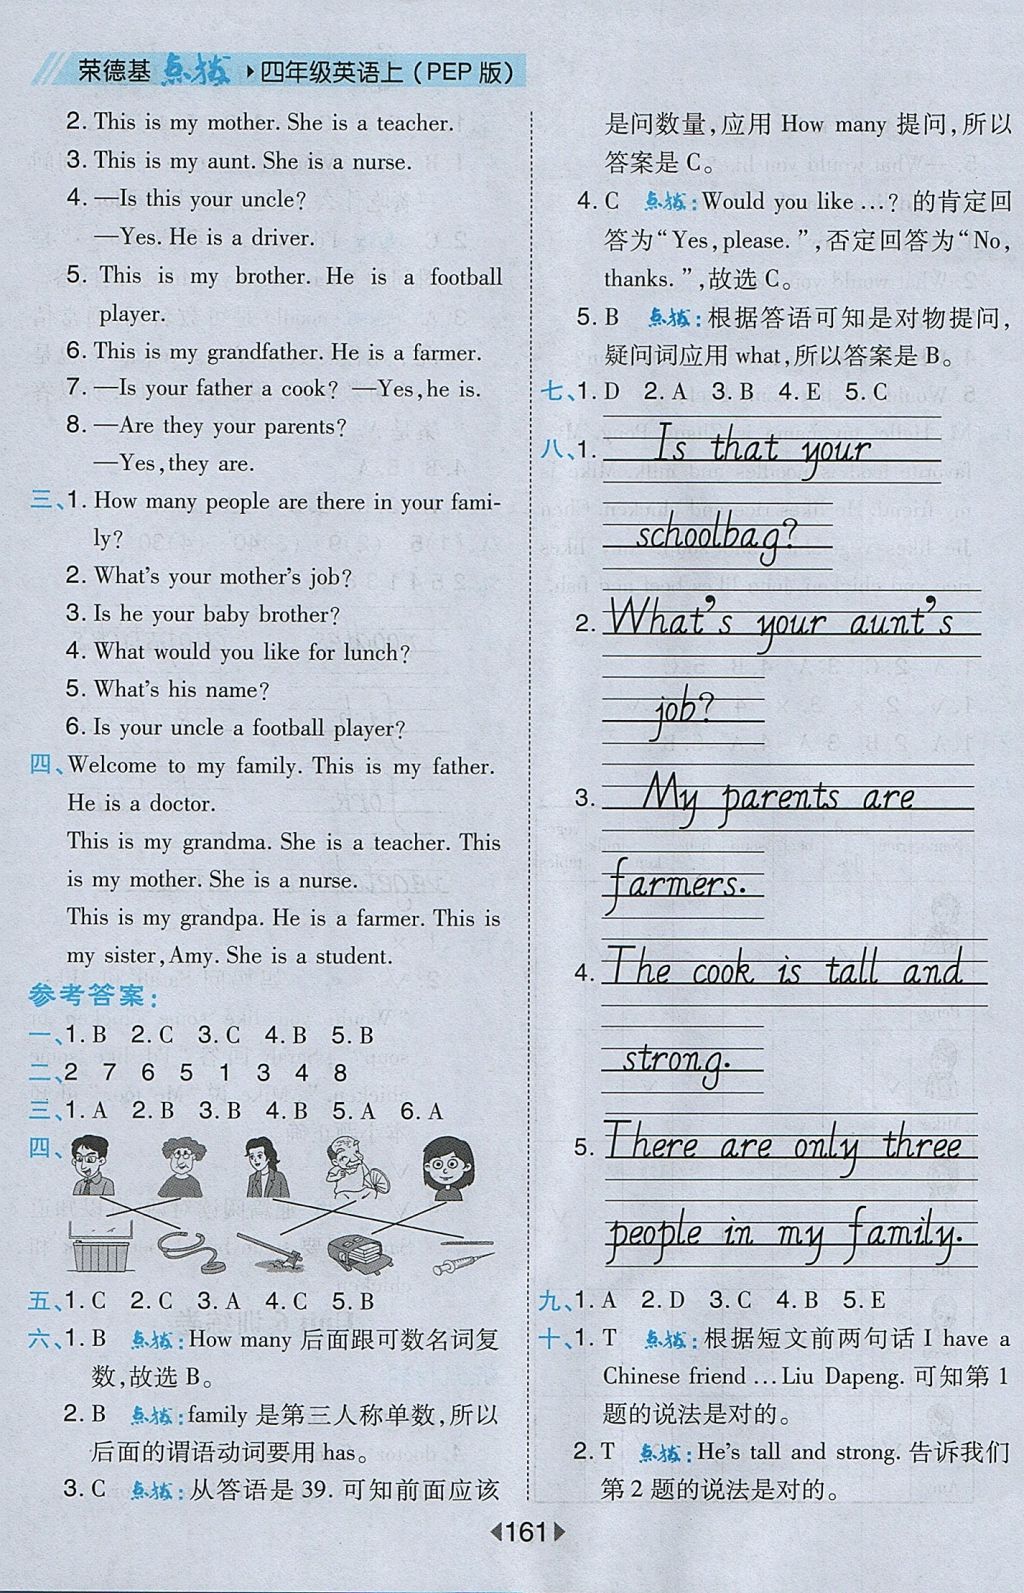 荣德基 点拨 ▸四年级英语上（PEP 版）
2. This is my mother. She is a teacher.
3. This is my aunt. She is a nurse.
4. —Is this your uncle?
—Yes. He is a driver.
5. This is my brother. He is a football
player.
6. This is my grandfather. He is a farmer.
7. —Is your father a cook? —Yes, he is.
8. —Are they your parents?
—Yes, they are.
三、1. How many people are there in your fami-
ly?
2. What's your mother's job?
3. Is he your baby brother?
4. What would you like for lunch?
5. What's his name?
6. Is your uncle a football player?
四、Welcome to my family. This is my father.
He is a doctor.
This is my grandma. She is a teacher. This
is my mother. She is a nurse.
This is my grandpa. He is a farmer. This is
my sister, Amy. She is a student.
参考答案：
一、1. B 2. C 3. C 4. B 5. B
二、2 7 6 5 1 3 4 8
三、1. A 2. B 3. B 4. B 5. A 6. A
四、
五、1. C 2. C 3. A 4. C 5. B
六、1. B 点拨：How many 后面跟可数名词复
数，故选 B。
2. B 点拨：family 是第三人称单数，所以
后面的谓语动词要用 has。
3. C 点拨：从答语是 39. 可知前面应该
是问数量，应用 How many 提问，所以
答案是 C。
4. C 点拨：Would you like …? 的肯定回
答为“Yes, please.”，否定回答为“No,
thanks.”，故选 C。
5. B 点拨：根据答语可知是对物提问，
疑问词应用 what，所以答案是 B。
七、1. D 2. A 3. B 4. E 5. C
八、1. Is that your
schoolbag?
2. What's your aunt's
job?
3. My parents are
farmers.
4. The cook is tall and
strong.
5. There are only three
people in my family.
九、1. A 2. D 3. C 4. B 5. E
十、1. T 点拨：根据短文前两句话 I have a
Chinese friend … Liu Dapeng. 可知第 1
题的说法是对的。
2. T 点拨：He's tall and strong. 告诉我们
第 2 题的说法是对的。
161